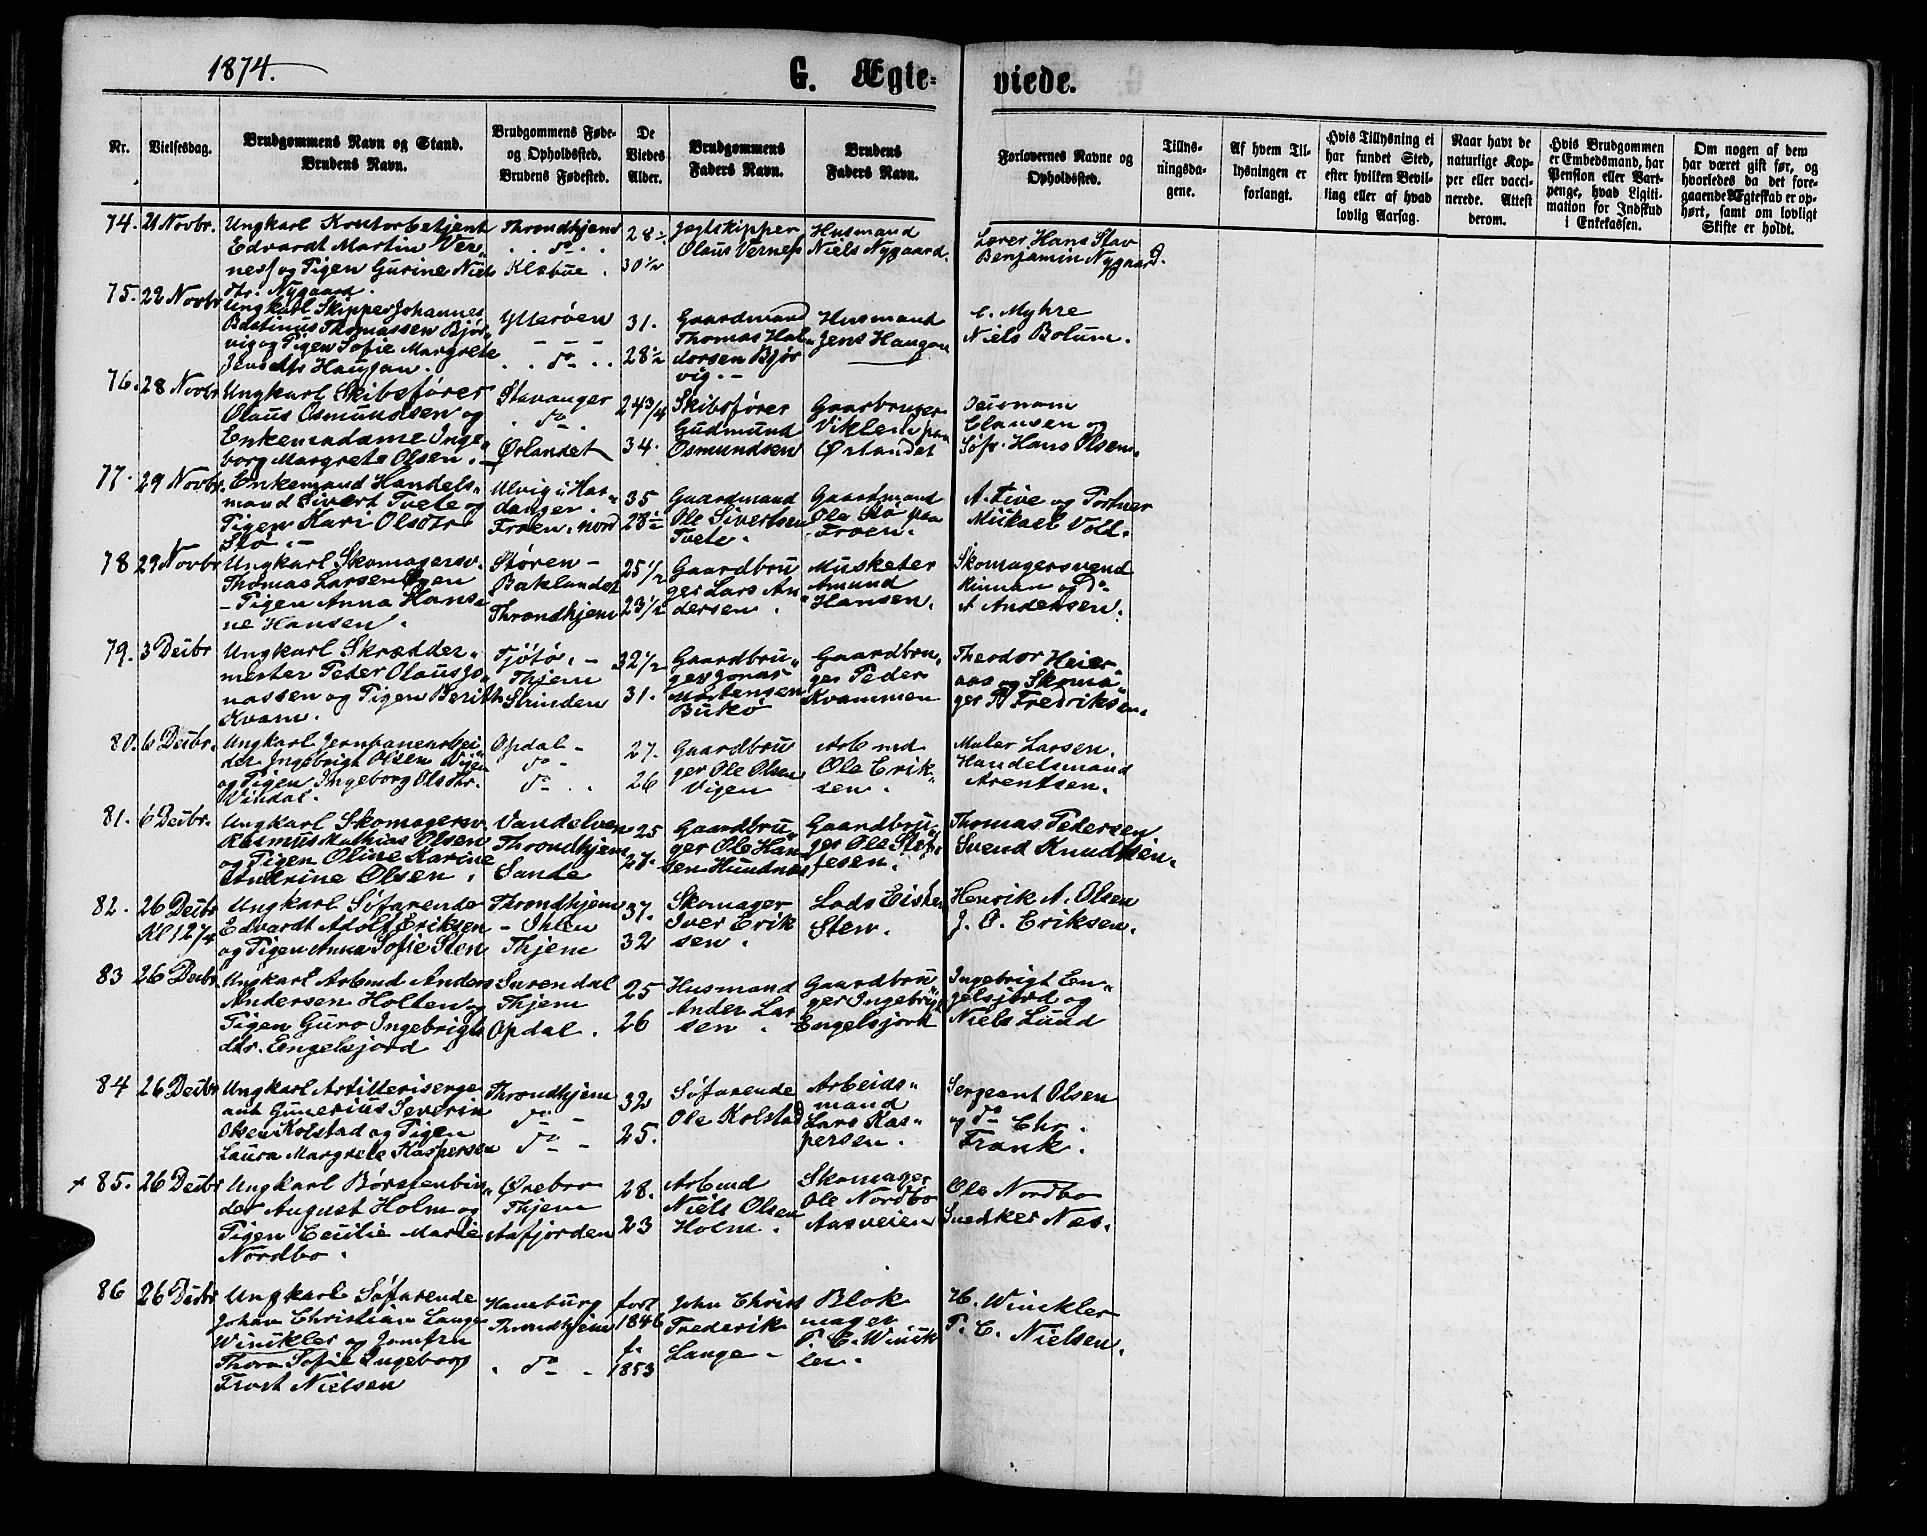 1874.
G. Ægte- viede.
Nr.
Vielsesdag.
Brudgommens Navn og Stand.
Brudens Navn.
Brudgommens Føde-
og Opholdssted.
Brudens Fødested.
De
Viedes
Alder.
Brudgommens
Faders Navn.
Brudens
Faders Navn.
Forlovernes Navne og
Opholdssted.
Tillys-
ningsda-
gene.
Af hvem Til-
lysningen er
forlangt.
Hvis Tillysning ei
har fundet Sted,
efter hvilken Bevil-
ling eller af hvad
lovlig Aarsag.
Naar havt de
naturlige Kop-
per eller vacci-
nerede. Attest
derom.
Hvis Brudgommen
er Embedsmand, har
Pension eller Vart-
penge, hvad Ligiti-
mation for Indskud
i Enkekassen.
Om nogen af dem
har været gift før, og
hvorledes da det fore-
gaaende Ægteskab er op-
hørt, samt om lovligt
Skifte er holdt.
74. 21 Novbr.
Ungkarl Kontorbetjent
Edvardt Martin Ver-
ness og Tigen Gurine Niels
dtr. Nygaard.
Throndhjem
do
Klæbue.
28½
30½
Jagtskipper
Olaus Verness
Husmand
Niels Nygaard.
Lærer Hans Stav
Benjamin Nygaard.
75. 22 Novbr
Ungkarl Skipper Johannes
Thomassen Bjør-
vig og Pigen Sofie Margrete
Jensdtr Haugan.
Ytterøen
do
31.
28½
Gaardmand
Thomas Hal-
dorsen Bjør
vig.
Husmand
Jens Haugan
E. Myhre
Niels Bolum.
76. 28 Novbr
Ungkarl Skibsfører
Olaus Osmundsen og
Enkemadame Inge-
borg Margrete Olsen.
Stavanger
do
Ørlandet
24 3/4
34.
Skibsfører
Gudmund
Osmundsen
Gaardbruger
Viklem paa
Ørlandet
Clausen og
Søfr. Hans Olsen.
77. 29 Novbr.
Enkemand Handels-
mand Sivert Tvete og
Pigen Kari Olsdtr
Stø.
Ulvig i Har-
danger.
Froen, nord
35
28½
Gaardmand
Ole Sivertsen
Tvete.
Gaardmand
Ole Stø paa
Froen.
A. Five og Portner
Mikael Voll.
78 29 Novbr
Ungkarl Skomagersv.
Thomas Larsen Ogen
Pigen Anna Hans-
ne Hansen.
Støren -
Baklandet
Throndhjem
25 1/2
23 1/2
Gaardbru
ger Lars An-
dersen.
Musketer
Amund
Hansen.
Skomagersvend
Rinnan og Do
A Andersen.
79. 3 Decbr
Ungkarl Skrædder-
mester Peter Olaus Jo-
nassen og Pigen Berith
Kvam.
Tjøtø. -
Thjem
Strinden
32 1/2
31.
Gaardbru-
ger Jonas
Mortensen
Bukø
Gaardbru-
ger Peder
Kvammen
Theodor Heier-
aas og Skoma-
ger P. Fredriksen.
80. 6 Decbr.
Ungkarl Jernbanearbei-
der Ingebrigt Olsen Vigen
og Pigen Ingeborg Olsdtr.
Vindal.
Opdal -
do
do
27.
26
Gaardbru
ger Ole Olsen
Vigen
Arbmd
Ole Erik-
sen.
Maler Larsen.
Handelsmand
Arentsen.
81. 6 Decbr.
Ungkarl Skomagersv.
Rasmus Mathias Olsen
og Pigen Oline Karine
Andrine Olsen.
Vandelven
Throndhjem
Sande
25
27.
Gaardbru-
ger Ole Han-
sen Hundnes
Gaardbru-
ger Ole Stef-
fesen.
Thomas Pedersen
Svend Knudtsen.
82. 26 Decbr
Kl 12 3/4
Ungkarl Søfarende
Edvardt Adolf Eriksen
og Pigen Anna Sofie Sten
Throndhjem
- Ihlen
Thjem
37.
32
Skomager
Iver Erik
sen.
Lods Eistein
Sten.
Henrik A. Olsen
J. O. Eriksen.
83 26 Decbr.
Ungkarl Arbmd Anders
Andersen Holten og
Pigen Guro Ingebrigts
dtr. Engelsjord
Surendal
Thjem
Opdal.
25
26
Husmand
Ander Lar
sen.
Gaardbru-
ger Ingebrigt
Engelsjord
Ingebrigt En-
gelsjord og
Niels Lund
84 26 Decbr
Ungkarl Artilleriserge
ant Gunerius Severin
Olsen Kolstad og Pigen
Laura Margrete Kaspersen
Throndhjem
do
do
32
25.
Søfarende
Ole Kolstad
Arbeids-
mand
Lars Kas-
persen.
Sergeant Olsen
og do Chr.
Frank.
+ 85. 26 Decbr
Ungkarl Børstenbin-
der August Holm og
Pigen Cecilie Marie
Nordbo.
Ørebro
Thjem
Aafjorden
28.
23
Arbmd
Niels Olsen
Holm.
Skomager
Ole Nordbo
Aasveien
Ole Nordbo
Snedker Næs.
86 26 Decbr
Ungkarl Søfarende
Johan Christian Lange
Winckler og Jomfru
Thora Sofie Ingeborg
Frost Nielsen
Hamburg
Throndhjem
do
født
1846
f.
1853
John Christ
Frederik
Lange -
Blok
mager
P. C. Winck
ler.
H. Winckler
P. C. Nielsen.